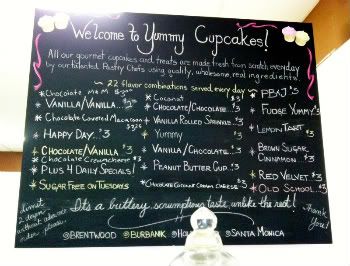 Welcome to Yummy Cupcakes!
All our gourmet cupcakes and treats are made fresh from scratch everyday
by our talented Pastry Chefs using quality, wholesome, real ingredients!
22 flavor combinations served every day
*Chocolate M&M $3
*Vanilla/Vanilla..
*Chocolate Covered Macaroon
*Happy Day.. $3
*Chocolate/Vanilla $3
*Chocolate Creamcheese $3
*Plus 4 Daily Specials!
*Sugar Free on Tuesdays
*Coconut $3
*Chocolate/Chocolate..
*Vanilla Rolled Sprinkle..
*Yummy
*Vanilla/Chocolate..
*Peanut Butter Cup.. $3
*Chocolate Coconut Cream Cheese $3
*PB&J $3
*Fudge Yummy $3
*Lemon Tart $3
*Brown Sugar
Cinnamon $3
*Red Velvet $3
*Old School.. $3
limit
a dozen
without advance
order please.
It's a buttery scrumptious taste unlike the rest!
Thank
You!
@Brentwood @Burbank @Santa Monica